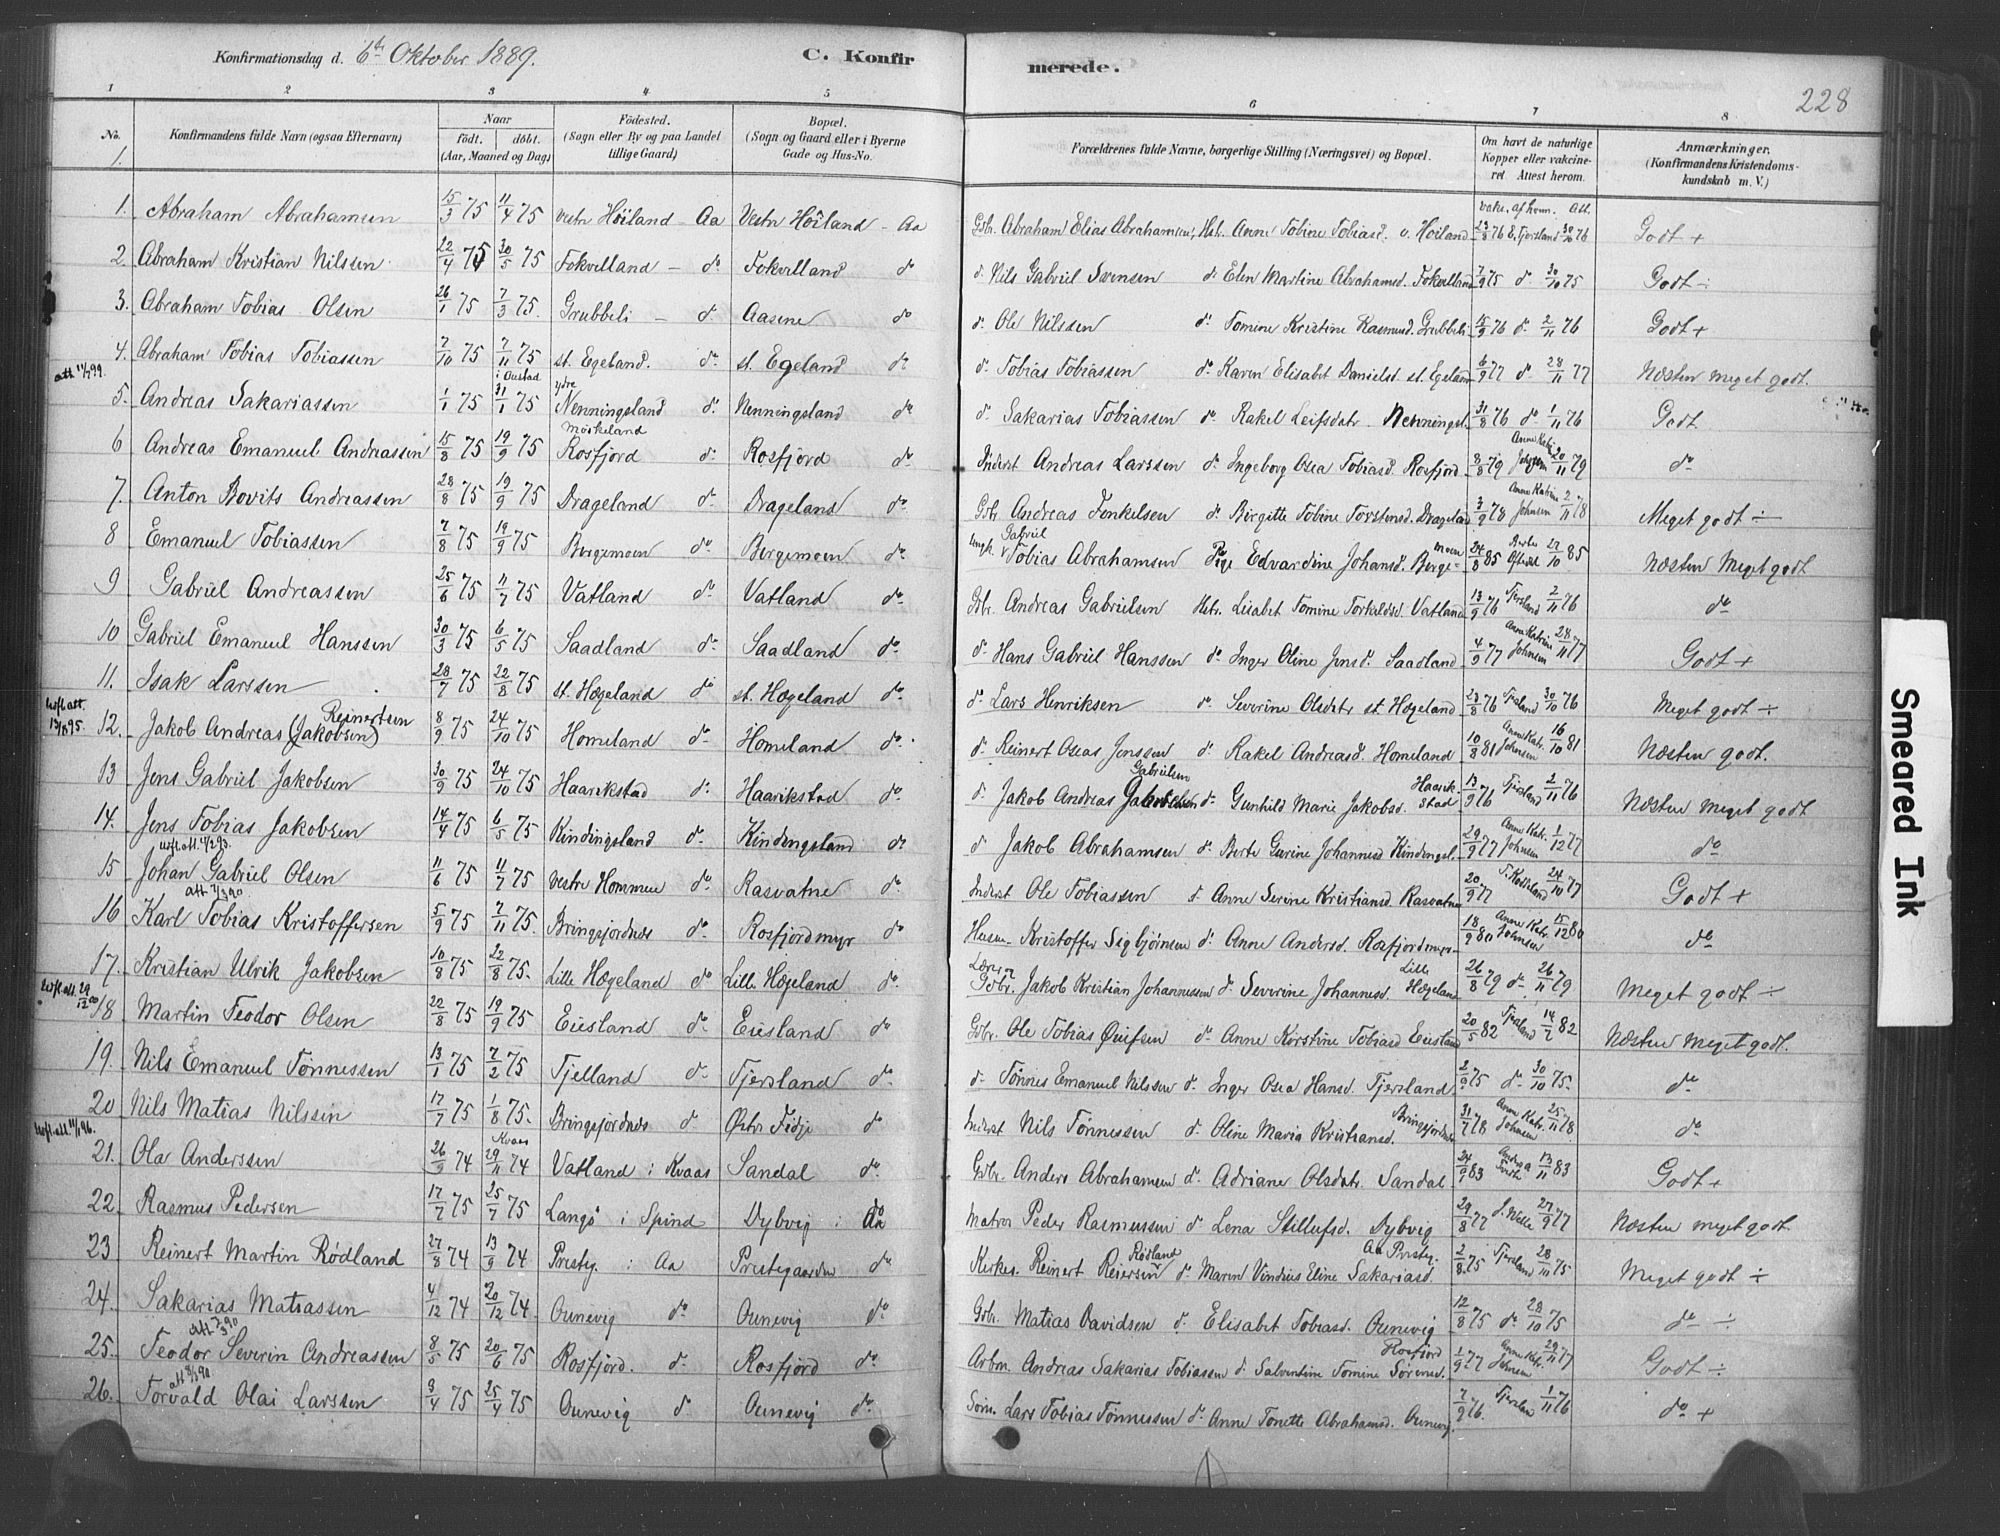 Konfirmationsdag d. 6te Oktober 1889. C. Konfirmerede. 228
1 2 3 4 5 6 7 8
No. Konfirmandens fulde Navn (ogsaa Efternavn) Naar födt. döbt. (Aar, Maaned og Dag) Födested. (Sogn eller By og paa Landet tillige Gaard) Bopæl. (Sogn og Gaard eller i Byerne Gade og Hus-No. Forældrenes fulde Navne, borgerlige Stilling (Næringsvei) og Bopæl. Om havt de naturlige Kopper eller vakcineret. Attest herom. Anmærkninger. (Konfirmandens Kristendomskundskab m. V.)
1.
vakc. af hvem. Att.
1. Abraham Abrahamsen 15/3 75 11/4 75 Vestn Höiland - Aa Vestn Höiland - Aa Gbr. Abraham Elias Abrahamsen, Hstr. Anne Tobine Tobiasd. v. Höiland 23/8 76 E. Tjersland 30/10 76 Godt +
2. Abraham Kristian Nilssen 22/4 75 30/5 75 Fokvilland - do Fokvilland do do Nils Gabriel Svensen do Elen Martine Abrahamsd. Fokvilland 7/9 75 do 30/10 75 Godt ÷
3. Abraham Tobias Olsen 26/1 75 7/3 75. Grubbeli - do Aasene do do Ole Nilssen do Tomine Kristine Rasmusd. Grubbeli 15/9 76 do 2/11 76 Godt +
4. Abraham Tobias Tobiassen 7/10 75 7/11 75 st. Egeland. do st. Egeland do do Tobias Tobiassen do Karen Elisabet Danielsd. st. Egeland 6/9 77 do 28/11 77 Næsten meget godt.
att 11/7 99.
5. Andreas Sakariassen 1/1 75 i Oustad 31/1 75 ydre Nenningsland do Nenningsland do do Sakarias Tobiassen do Rakel Leifsdatr. Nenningsl. 31/8 76 do 1/11 76 Godt
6 Andreas Emanuel Andreassen 15/8 75 19/9 75 Möskeland Rosfjord do Rosfjord do Inderst Andreas Larssen do Ingeborg Osea Tobiasd. Rosfjord 8/8 79 Anne Katrine Johnsen 20/11 79 do
7. Anton Bovits Andreassen 28/8 75 19/9 75 Drageland do Drageland do Gbr. Andreas Tenkelsen do Birgitte Tobine Torstensd. Drageland 3/9 78 Anne Katrine Johnsen 2/11 78 Meget godt ÷
8 Emanuel Tobiassen 7/8 75 19/9 75 Bergemoen do Bergemoen do Ungk. Tobias Gabriel Abrahamsen Pige Edvardine Johansd. Bergemoen 24/8 85 Berte Eftedal 27/10 85 Næsten Meget godt
9 Gabriel Andreassen 25/6 75 11/7 75 Vatland do Vatland do Gbr. Andreas Gabrielsen Hstr. Lisabet Tomine Torkeldsd. Vatland 13/9 76 Tjersland 2/11 76 do
10 Gabriel Emanuel Hanssen 30/3 75 6/5 75 Saadland do Saadland do do Hans Gabriel Hanssen do Inger Oline Jensd. Saadland 4/9 77 Anne Katrine Johnsen 28/11 77 Godt +
11. Isak Larssen 28/7 75 22/8 75 st. Hægeland do st. Hægeland do do Lars Henriksen do Severine Olsdatr st. Hægeland 23/8 76 Tjersland 30/10 76 Meget godt ÷
12. Jakob Andreas (Jakobsen) Reinertsen 8/9 75 24/10 75 Homeland do Homeland do do Reinert Oseas Jenssen do Rakel Andreasd. Homeland 10/8 81 Anne Katr. Johnsen 16/10 81 Næsten godt.
13 Jens Gabriel Jakobsen 30/9 75 24/10 75 Haarikstad do Haarikstad do do Jakob Andreas Gabrielsen do Gunhild Marie Jakobsd. Haarikstad 13/9 76 Tjersland 2/11 76 Næsten meget godt
14. Jens Tobias Jakobsen 14/4 75 6/5 75 Kindingsland do Kindingsland do do Jakob Abrahamsen do Berte Gurine Johannesd Kindingsl. 29/9 77 Anne Katr. Johnsen 1/12 77 do
15 Johan Gabriel Olsen 11/6 75 11/7 75 Vestre Hommen do Rasvatne do Inderst Ole Tobiassen do Anne Serine Kristiansd. Rasvatne 20/9 77 24/10 77 Godt +
att 7/3 90
16 Karl Tobias Kristoffersen 5/9 75 7/11 75. Bringsfjordnes do Rosfjordmyr do Husm. Kristoffer Sigbjörnsen do Anne Andersd. Rosfjordmyr 18/9 80 Anne Katr. Johnsen 15/12 80 do
17. Kristian Ulrik Jakobsen 10/8 75 22/8 75. Lille Hægeland do Lille Hægeland do Lærer Gbr. Jakob Kristian Johannessen do Severine Johannesd. Lille Hægeland 26/8 79 do 26/11 79 Meget godt ÷
18 Martin Teodor Olsen 22/8 75 19/9 75 Eiesland do Eiesland do Gbr. Ole Tobias Öuifsen do Anne Kirstine Tobiasd Eiesland 20/5 82 Tjersland 14/7 82 Næsten meget godt.
19. Nils Emanuel Tönnessen 13/1 75 7/2 75 Tjelland do Tjersland do do Tönnes Emanuel Nilssen do Inger Osea Hansd. Tjersland 2/9 75 do 30/10 75. do
20 Nils Matias Nilssen 17/7 75 1/8 75. Bringsfjordnes do Östr. Fidje do Inderst Nils Tönnessen do Oline Maria Kristiansd. Bringsfjordnes 31/7 78 Anne Katr. Johnsen 25/11 78 do
21. Ola Anderssen 26/9 74 Kvaas 29/11 74 Vatland i Kvaas Sandal do Gbr. Anders Abrahamsen do Adriane Olsdatr. Sandal 24/9 83 13/11 83 Godt +
22. Rasmus Pedersen 17/7 75 25/7 75 Langö i Spind Dybvig i Aa Matros Peder Rasmussen do Lena Stillufsd. Dybvig 29/8 77 J. Welle 27/9 77 Næsten meget godt.
23 Reinert Martin Rödland 27/8 74 13/9 74 Presteg. i Aa Prestegaarden do Kirkes. Reinert Reiersen Rödland do Maren Vindius Eline Sakariasd. Aa Presteg. 2/8 75 Tjersland 28/10 75 Meget godt ÷
24. Sakarias Matiassen 4/12 74 20/12 74 Ounevig do Ounevig do Gbr. Matias Davidsen do Elisabet Tobiasd. Ounevig 12/8 75 do 28/10 75 do ÷
25. Teodor Severin Andreassen 8/5 75 20/6 75 Rosfjord. do Rosfjord do Arbm. Andreas Sakarias Tobiassen do Salventine Tomine Sörensd. Rosfjord 1/9 77 Anne Katr. Johnsen 29/11 77 Godt ÷
26. Torvald Olai Larssen 9/4 75 25/4 75 Ounevig do Ounevig do Söm. Lars Tobias Tönnessen do Anne Tonette Abrahamsd. Ounevig. 7/9 76. Tjersland 1/11 76 do +
Smeared Ink